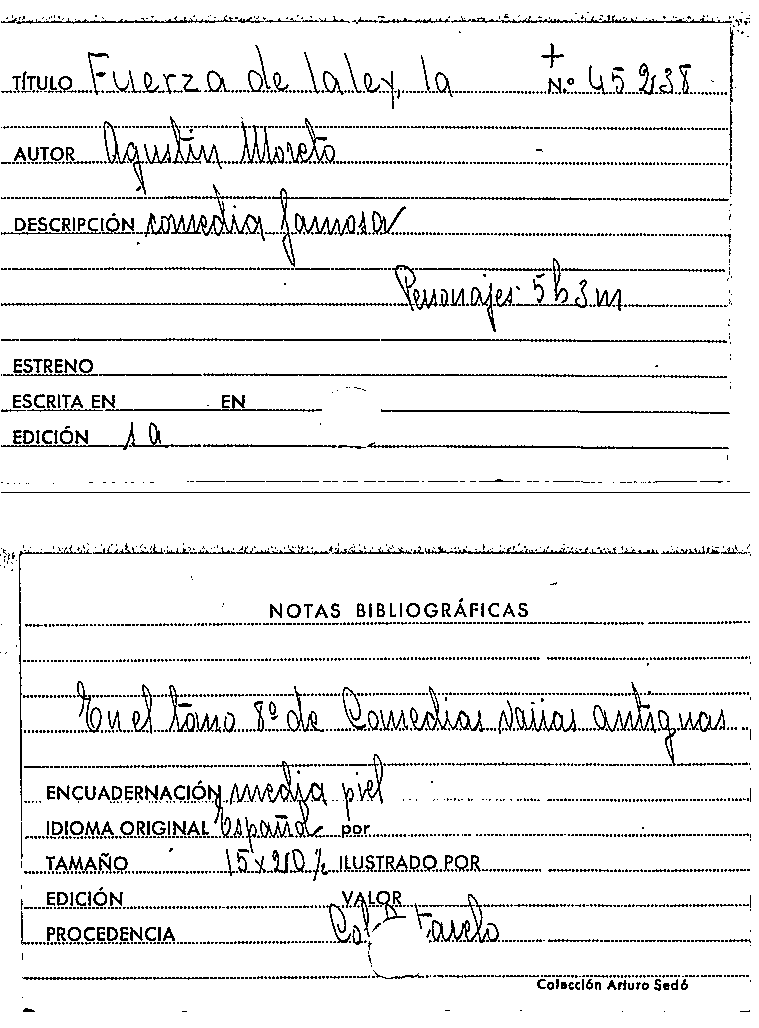 TÍTULO Fuerza de la ley, la + N.º 45238
AUTOR Agustin Moreto
DESCRIPCIÓN comedia famosa
Personajes: 5h 3m
ESTRENO
ESCRITA EN EN
EDICIÓN 1a
NOTAS BIBLIOGRÁFICAS
En el tomo 8º de Comedias varias antiguas
ENCUADERNACIÓN media piel
IDIOMA ORIGINAL Español por
TAMAÑO 15x20½ ILUSTRADO POR
EDICIÓN VALOR
PROCEDENCIA Col
Colección Arturo Sedó